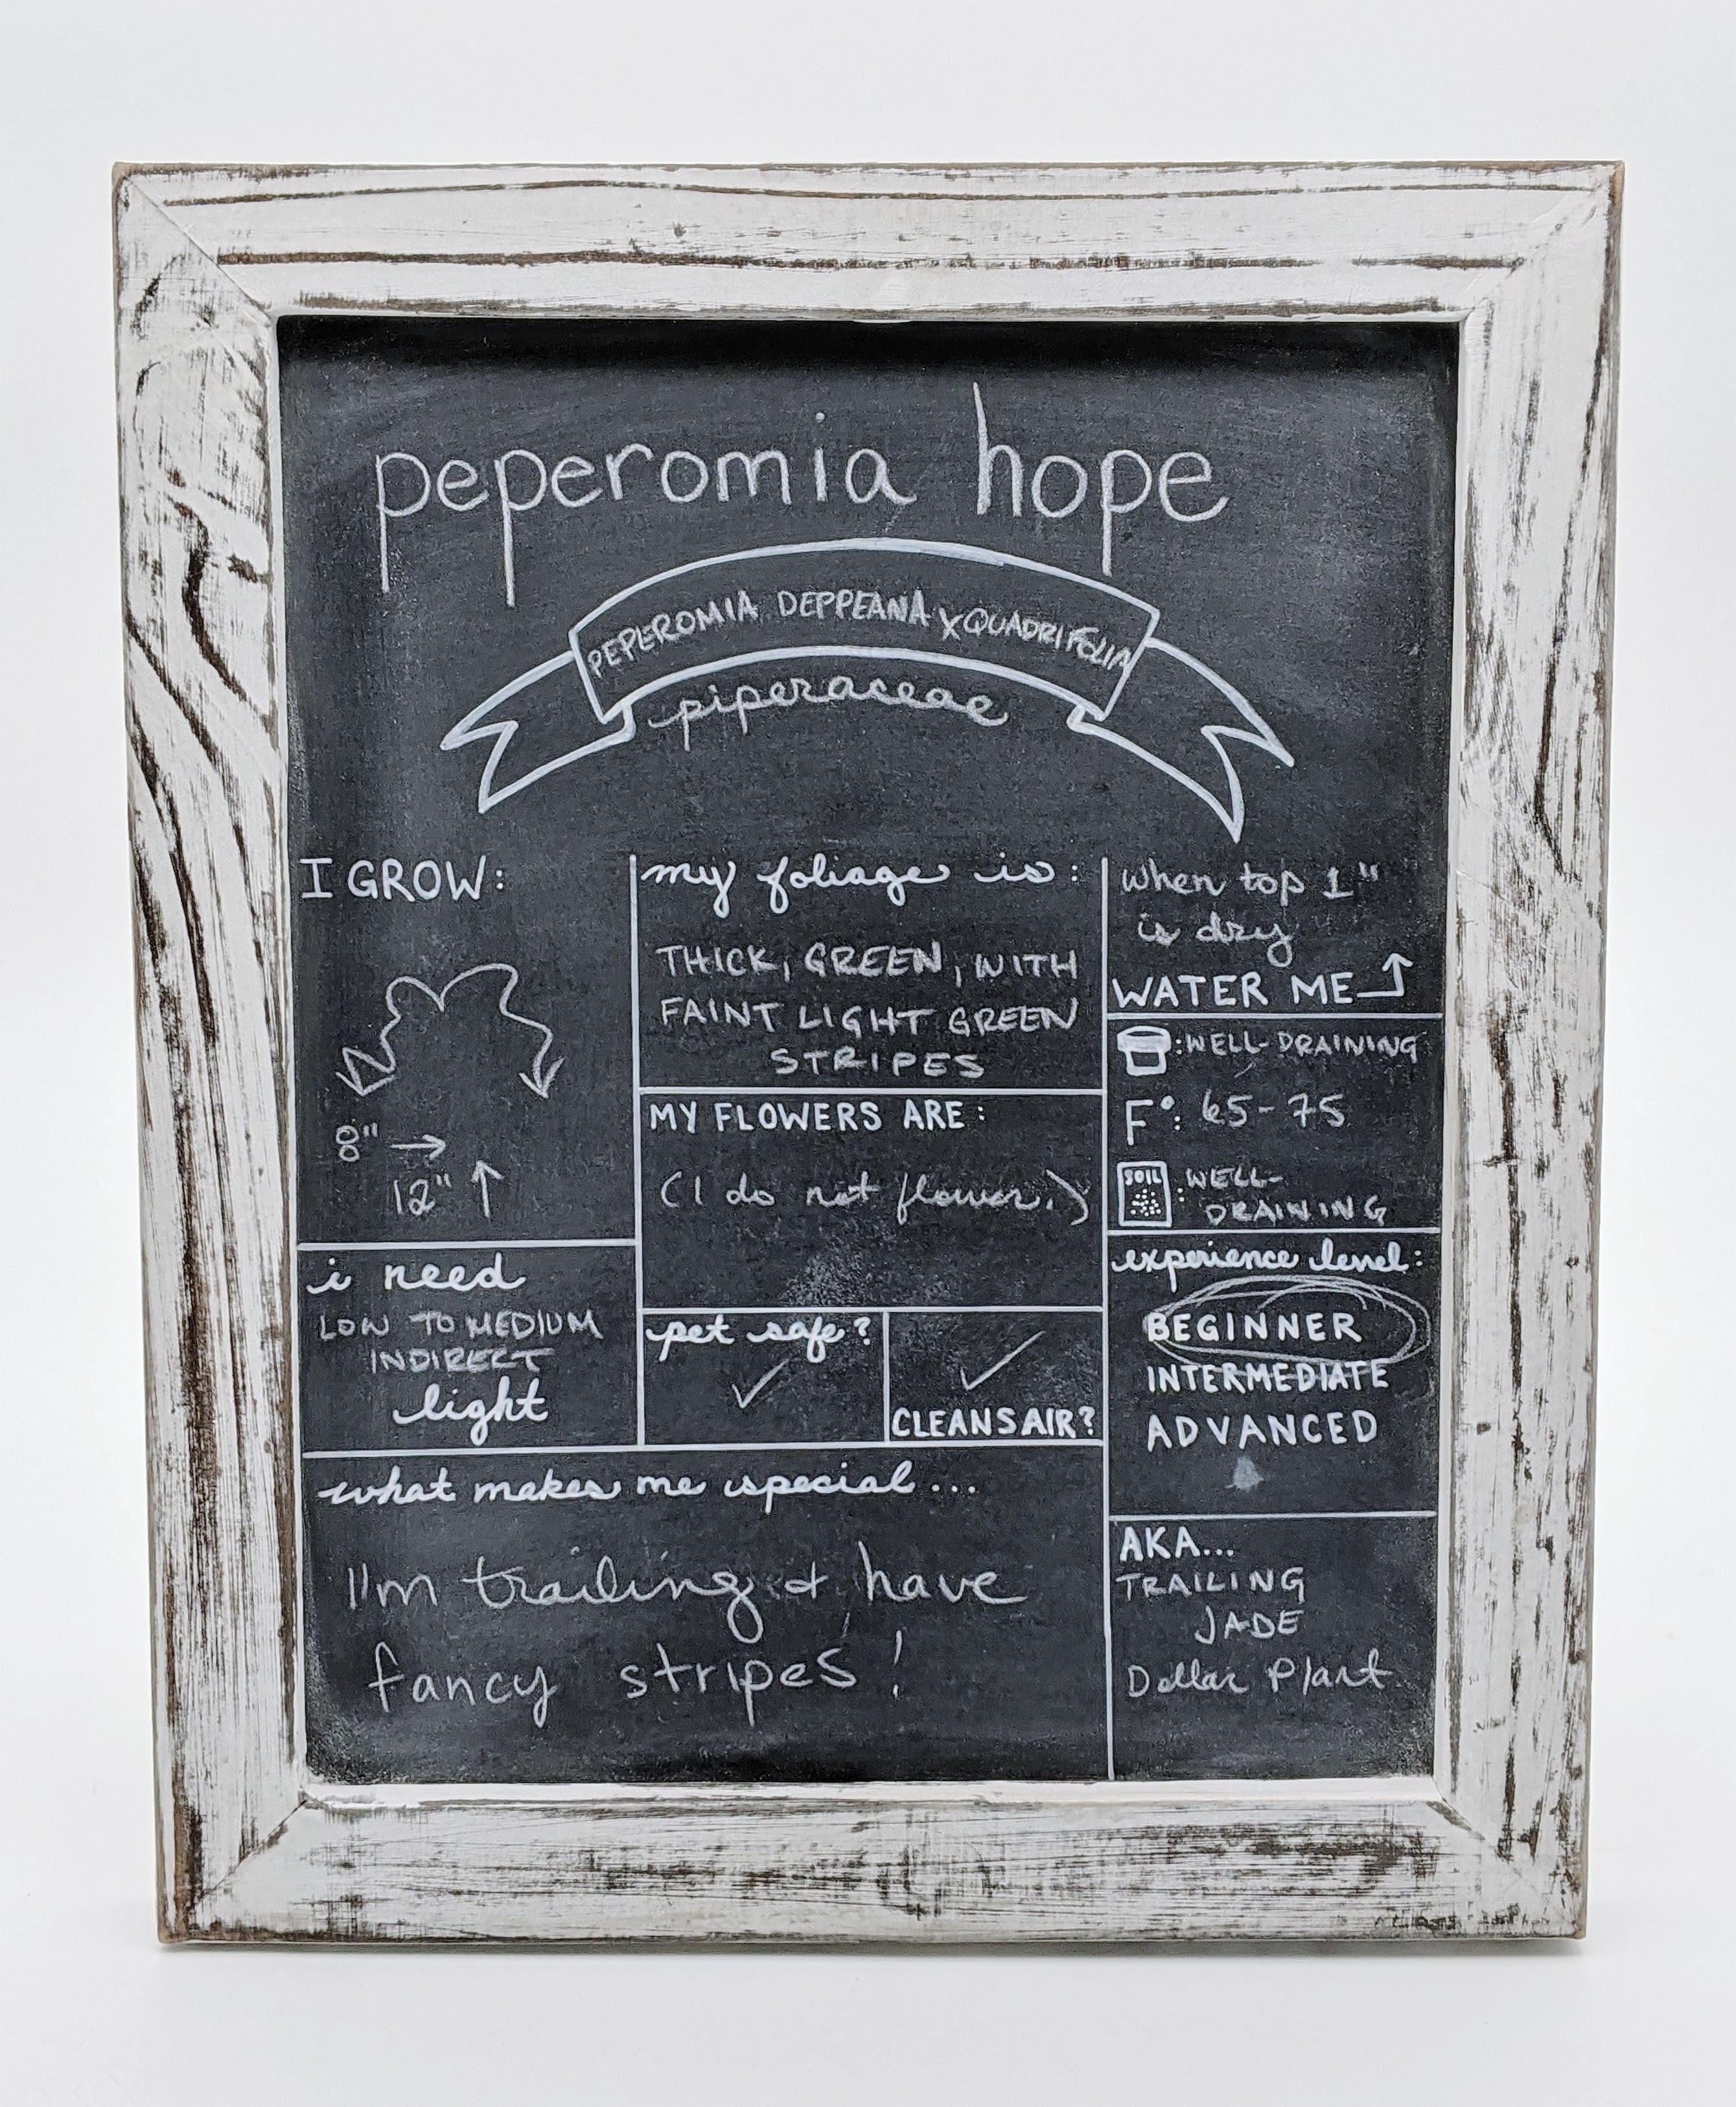 peperomia hope
PEPEROMIA DEPPEANA X QUADRIFOLIA
piperaceae
I GROW:
8" →
12" ↑
i need
LOW TO MEDIUM
INDIRECT
light
my foliage is:
THICK, GREEN, WITH
FAINT LIGHT GREEN
STRIPES
MY FLOWERS ARE:
(I do not flower.)
pet safe?
✓
✓
CLEANS AIR?
when top 1"
is dry
WATER ME
: WELL-DRAINING
F°: 65-75
SOIL : WELL-
DRAINING
experience level:
BEGINNER
INTERMEDIATE
ADVANCED
what makes me special...
I'm trailing & have
fancy stripes!
AKA...
TRAILING
JADE
Dollar Plant